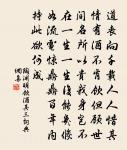 道喪向千載人人惜其
情有酒不肯飲但顧世
間名所以貴我身豈不
在一生一生復能幾倏
如流電驚鼎鼎百年內
持此欲何成
陶淵明飲酒其三